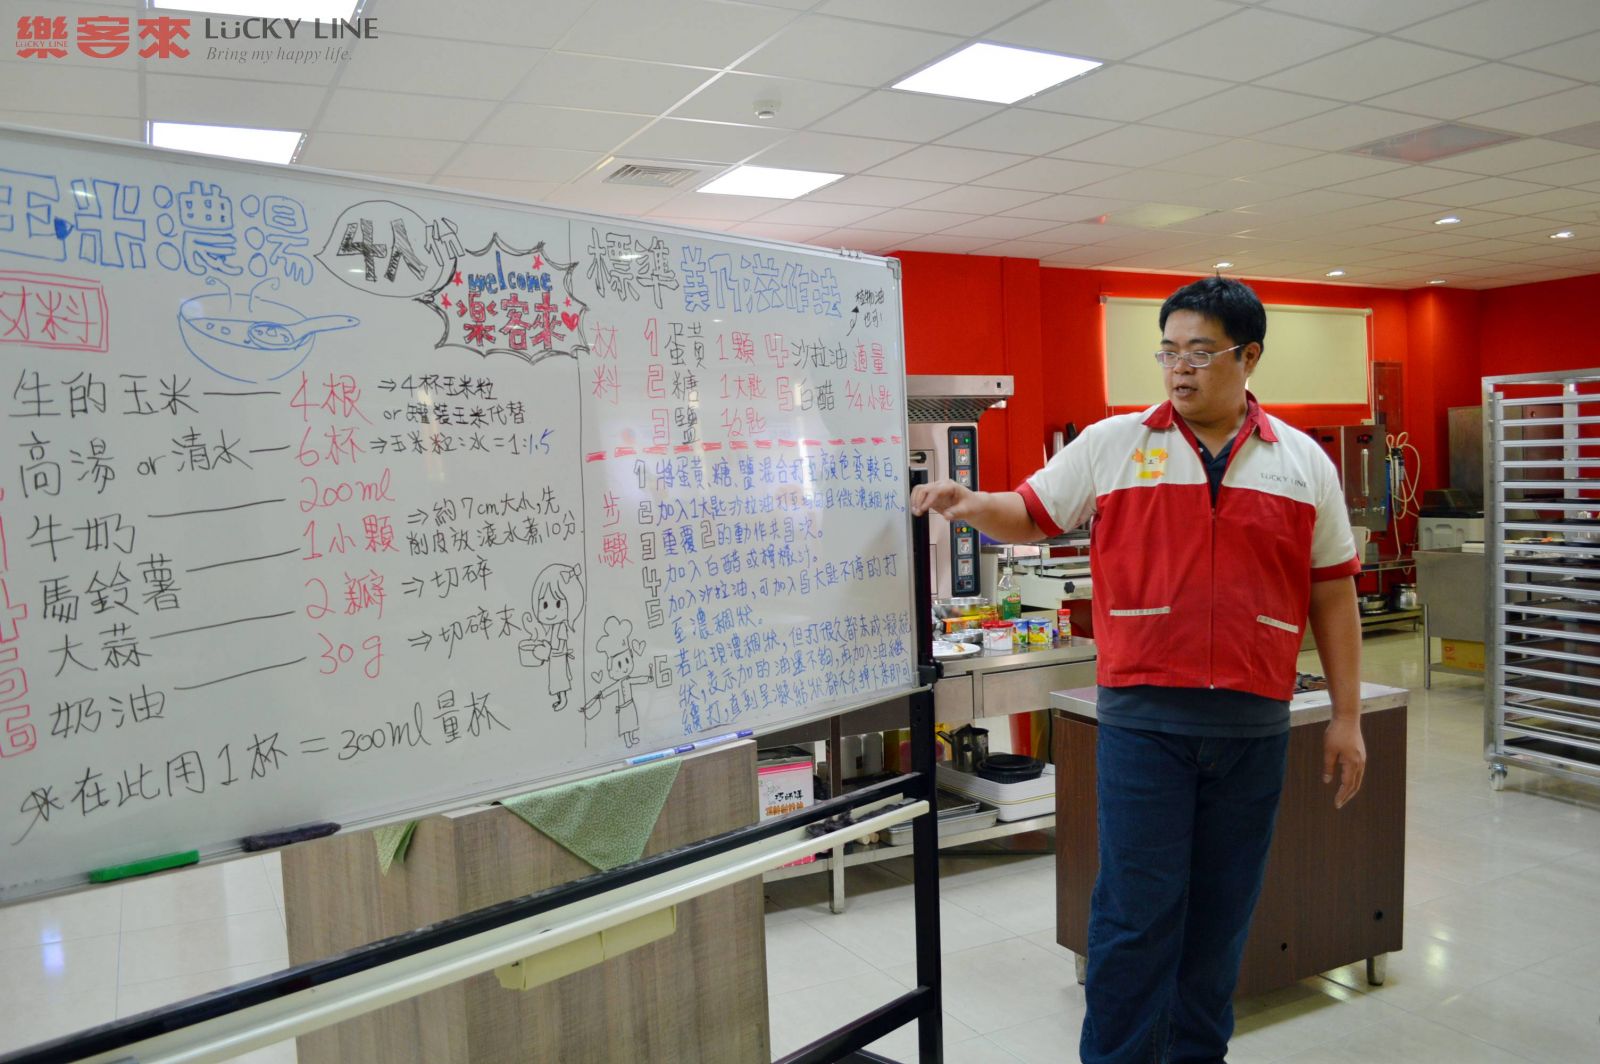 樂客來 LüCKY LINE
LüCKY LINE
Bring my happy life.
玉米濃湯
4人份
welcome
樂客來
材料
生的玉米 4根 ⇒4杯玉米粒
or 罐裝玉米代替
高湯 or 清水 6杯 ⇒玉米粒:水=1:1.5
牛奶 200ml
馬鈴薯 1小顆 ⇒約7cm大小,先
削皮放滾水煮10分
大蒜 2瓣 ⇒切碎
奶油 30g ⇒切碎末
※在此用1杯=300ml量杯
標準美乃滋作法
植物油
也可!
材料
1蛋黃 1顆 4沙拉油 適量
2糖 1大匙 5白醋 1/4小匙
3鹽 1/2匙
步驟
1 將蛋黃、糖、鹽混合打至顏色變較白。
2 加入1大匙沙拉油打至均勻且微濃稠狀。
3 重覆2的動作共3次。
4 加入白醋或檸檬汁。
5 加入沙拉油,可加入5大匙不停的打
至濃稠狀。
6 若出現濃稠狀,但打很久都未成凝結
狀,表示加的油量不夠,再加入油繼
續打,直到呈凝結狀都不會掉下來即可
LUCKY LINE